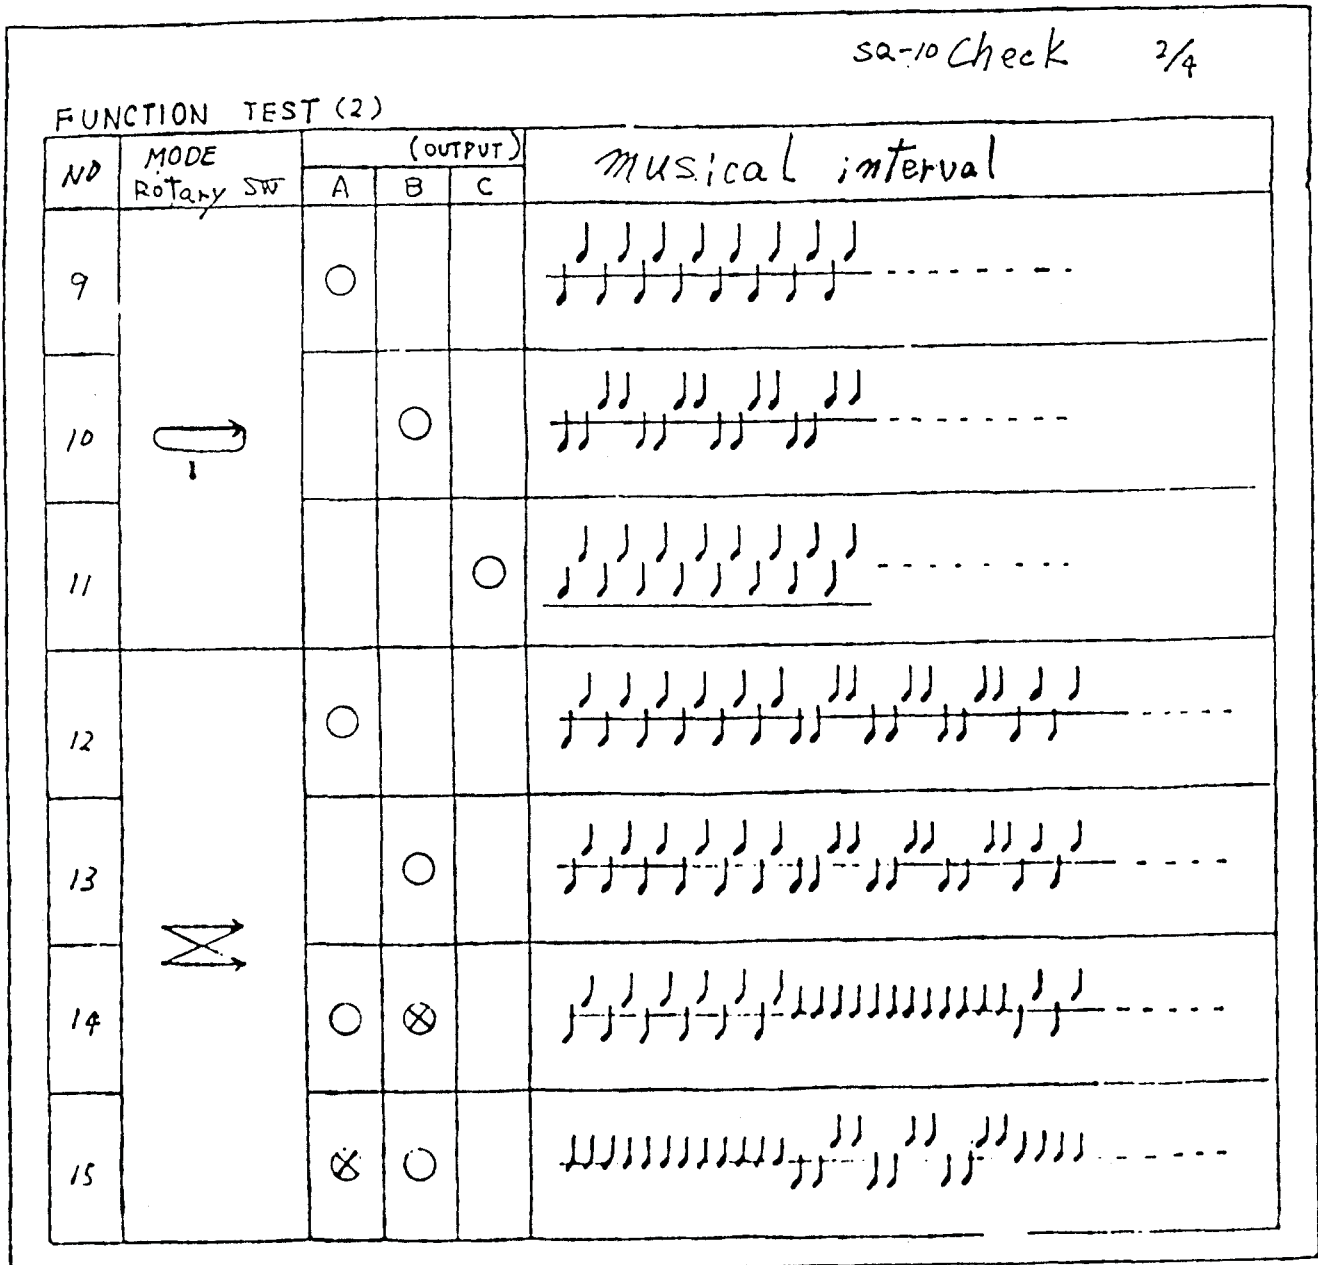 SQ-10 Check 2/4
FUNCTION TEST (2)
NO MODE Rotary SW (OUTPUT) A B C musical interval
9
10
1
11
12
13
14
15